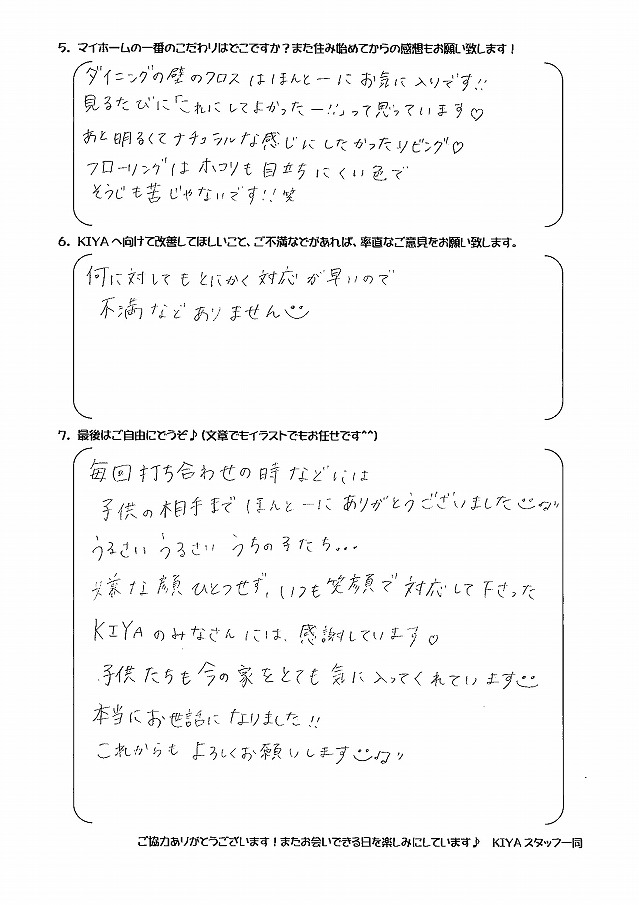 5. マイホームの一番のこだわりはどこですか？また住み始めてからの感想もお願い致します！
ダイニングの壁のクロスはほんとーにお気に入りです!!
見るたびに「これにしてよかったー!!」って思っています♡
あと明るくてナチュラルな感じにしたかったリビング♡
フローリングはホコリも目立ちにくい色で
そうじも苦じゃないです!!笑
6. KIYAへ向けて改善してほしいこと、ご不満などがあれば、率直なご意見をお願い致します。
何に対してもとにかく対応が早いので
不満などありません
7. 最後はご自由にどうぞ♪(文章でもイラストでもお任せです^^)
毎回打ち合わせの時などには
子供の相手までほんとーにありがとうございました♫
うるさいうるさいうちの子たち...
嫌な顔ひとつせず、いつも笑顔で対応して下さった
KIYAのみなさんには、感謝しています♡
子供たちも今の家をとても気に入ってくれています
本当にお世話になりました!!
これからもよろしくお願いします♫
ご協力ありがとうございます！またお会いできる日を楽しみにしています♪ KIYAスタッフ一同